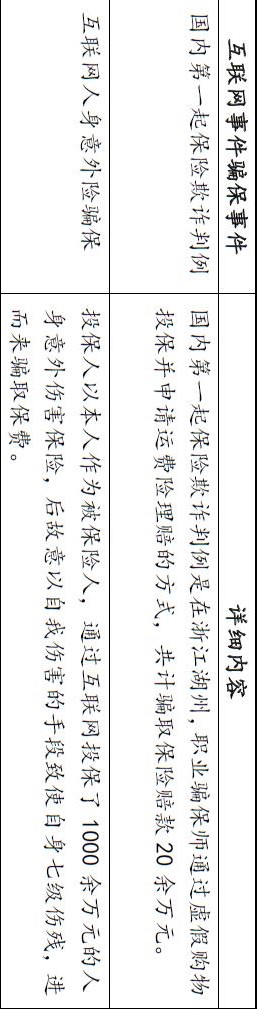 互联网事件骗保事件
详细内容
国内第一起保险欺诈判例
国内第一起保险欺诈判例是在浙江湖州，职业骗保师通过虚假购物
投保并申请运费险理赔的方式，共计骗取保险赔款 20 余万元。
互联网人身意外险骗保
投保人以本人作为被保险人，通过互联网投保了 1000 余万元的人
身意外伤害保险，后故意以自我伤害的手段致使自身七级伤残，进
而来骗取保费。